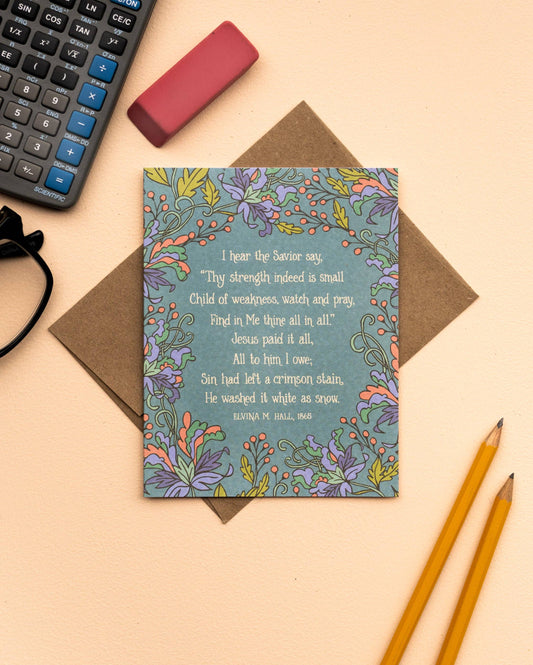 SIN
LN
CE/C
FRQ
1/X
COS
TAN
y²
EE
√x
÷
(
)
8
9
×
SCI
ENG
5
6
–
2
3
+
FIX
0
+/−
=
SCIENTIFIC
I hear the Savior say,
“Thy strength indeed is small
Child of weakness, watch and pray,
Find in Me thine all in all.”
Jesus paid it all,
All to him I owe;
Sin had left a crimson stain,
He washed it white as snow.
ELVINA M. HALL, 1865